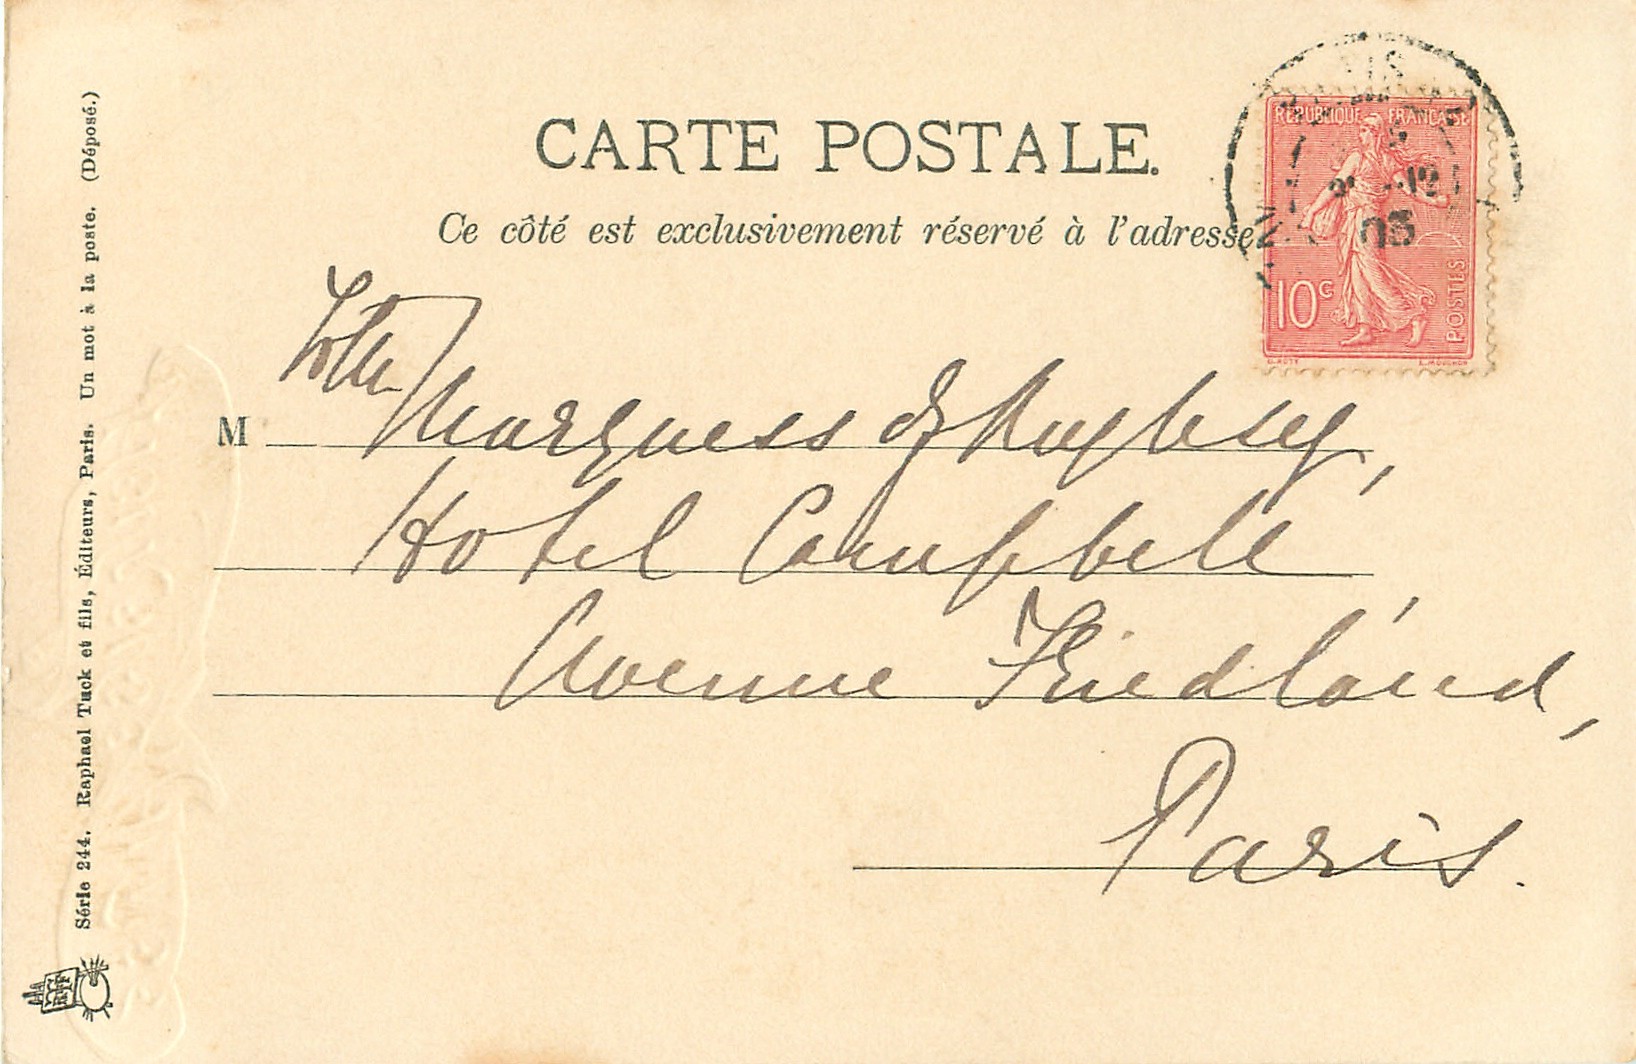 CARTE POSTALE.
Ce côté est exclusivement réservé à l'adresse
RÉPUBLIQUE FRANÇAISE
10c
POSTES
O. ROTY
L. MOUCHON
03
To the
M Marquess of Anglesey,
Hotel Campbell,
Avenue Friedland,
Paris.
Série 244. Raphael Tuck et fils, Éditeurs, Paris. Un mot à la poste. (Déposé.)